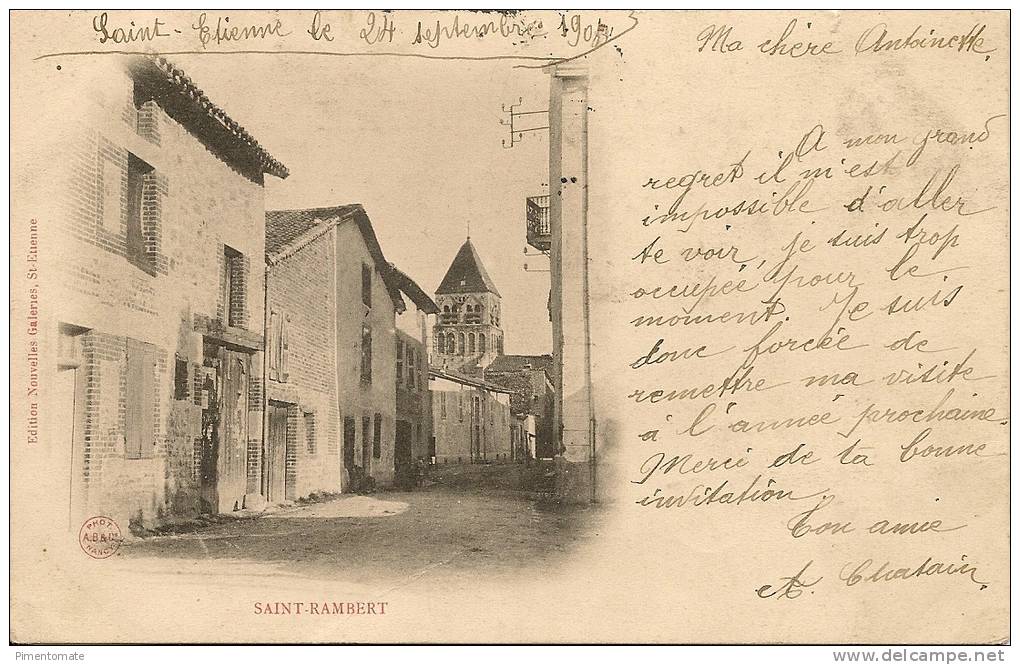 Saint-Etienne le 24 septembre
Ma chère Antoinette,
A mon grand
regret il m'est
impossible d'aller
te voir, je suis trop
occupée pour le
moment. Je suis
donc forcée de
remettre ma visite
à l'année prochaine.
Merci de ta bonne
invitation.
Ton amie
A. Chatain.
Edition Nouvelles Galeries, St-Etienne
PHOT.
A.B.& Cie
NANCY
SAINT-RAMBERT
Pimentomate
www.delcampe.net